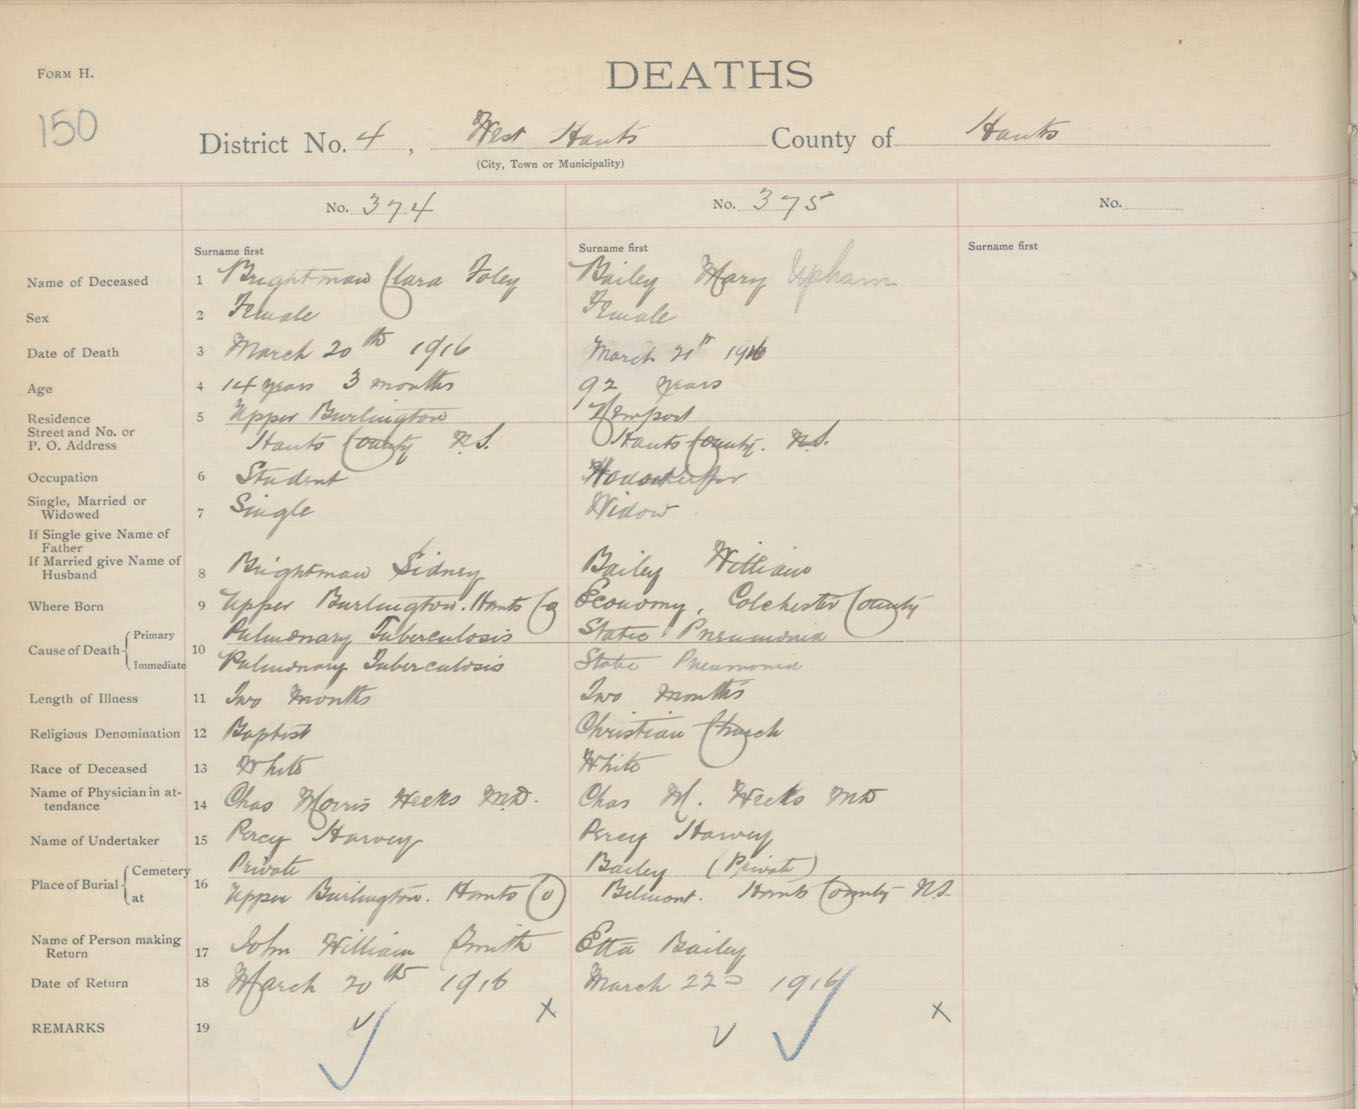 FORM H.
DEATHS
150
District No. 4, West Hants County of Hants
(City, Town or Municipality)
No. 374 No. 375 No.
Surname first Surname first Surname first
Name of Deceased 1 Brightman Clara Foley Bailey Mary Upham
Sex 2 Female Female
Date of Death 3 March 20th 1916 March 21st 1916
Age 4 14 years 3 months 92 years
Residence 5 Upper Burlington Newport
Street and No. or
P. O. Address Hants County N.S. Hants County. N.S.
Occupation 6 Student Housekeeper
Single, Married or
Widowed 7 Single Widow
If Single give Name of
Father
If Married give Name of
Husband 8 Brightman Sidney Bailey William
Where Born 9 Upper Burlington. Hants Co Economy, Colchester County
Cause of Death Primary 10 Pulmonary Tuberculosis Static Pneumonia
Immediate Pulmonary Tuberculosis Static Pneumonia
Length of Illness 11 Two months Two months
Religious Denomination 12 Baptist Christian Church
Race of Deceased 13 White White
Name of Physician in at-
tendance 14 Chas Morris Weeks M.D. Chas M. Weeks MD
Name of Undertaker 15 Percy Harvey Percy Harvey
Place of Burial Cemetery 16 Private Bailey (Private)
at Upper Burlington. Hants Co Belmont. Hants County N.S.
Name of Person making
Return 17 John William Smith Etta Bailey
Date of Return 18 March 20th 1916 March 22nd 1916
REMARKS 19